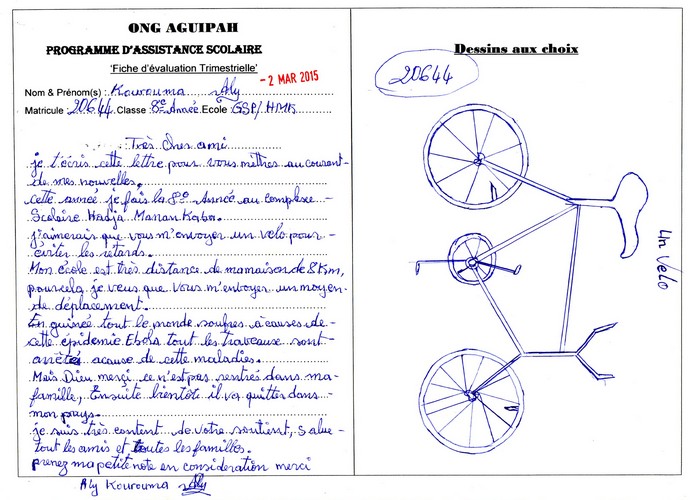 ONG AGUIPAH
PROGRAMME D'ASSISTANCE SCOLAIRE
'Fiche d'évaluation Trimestrielle'
- 2 MAR 2015
Nom & Prénom(s) : Kourouma Aly
Matricule : 20644 Classe 8e Année Ecole GSP/HMK
Très cher ami
je t'écris cette lettre pour vous mettres au courant-
de mes nouvelles.
cette année je fais la 8e Année au complexe -
Scolaire Hadja Manan Kaba.
j'aimerais que vous m'envoyer un vélo pour -
éviter les retards.
Mon école est très distance de ma maison de 8 Km,
pour cela je veus que vous m'envoyer un moyen-
de déplacement.
En guinée tout le monde soufres à causes de-
cette épidemie Ebola tout les travause sont-
arrêtés acause de cette maladies.
Mais Dieu merçi ce n'est pas rentrés dans ma-
famille, Ensuite bientôt il va quittés dans -
mon pays.
je suis très content de votre soutient, salue-
tout les amis et toutes les familles.
prenez ma petite note en consideration merci
Aly Kourouma Aly
Dessins aux choix
20644
Un Vélo